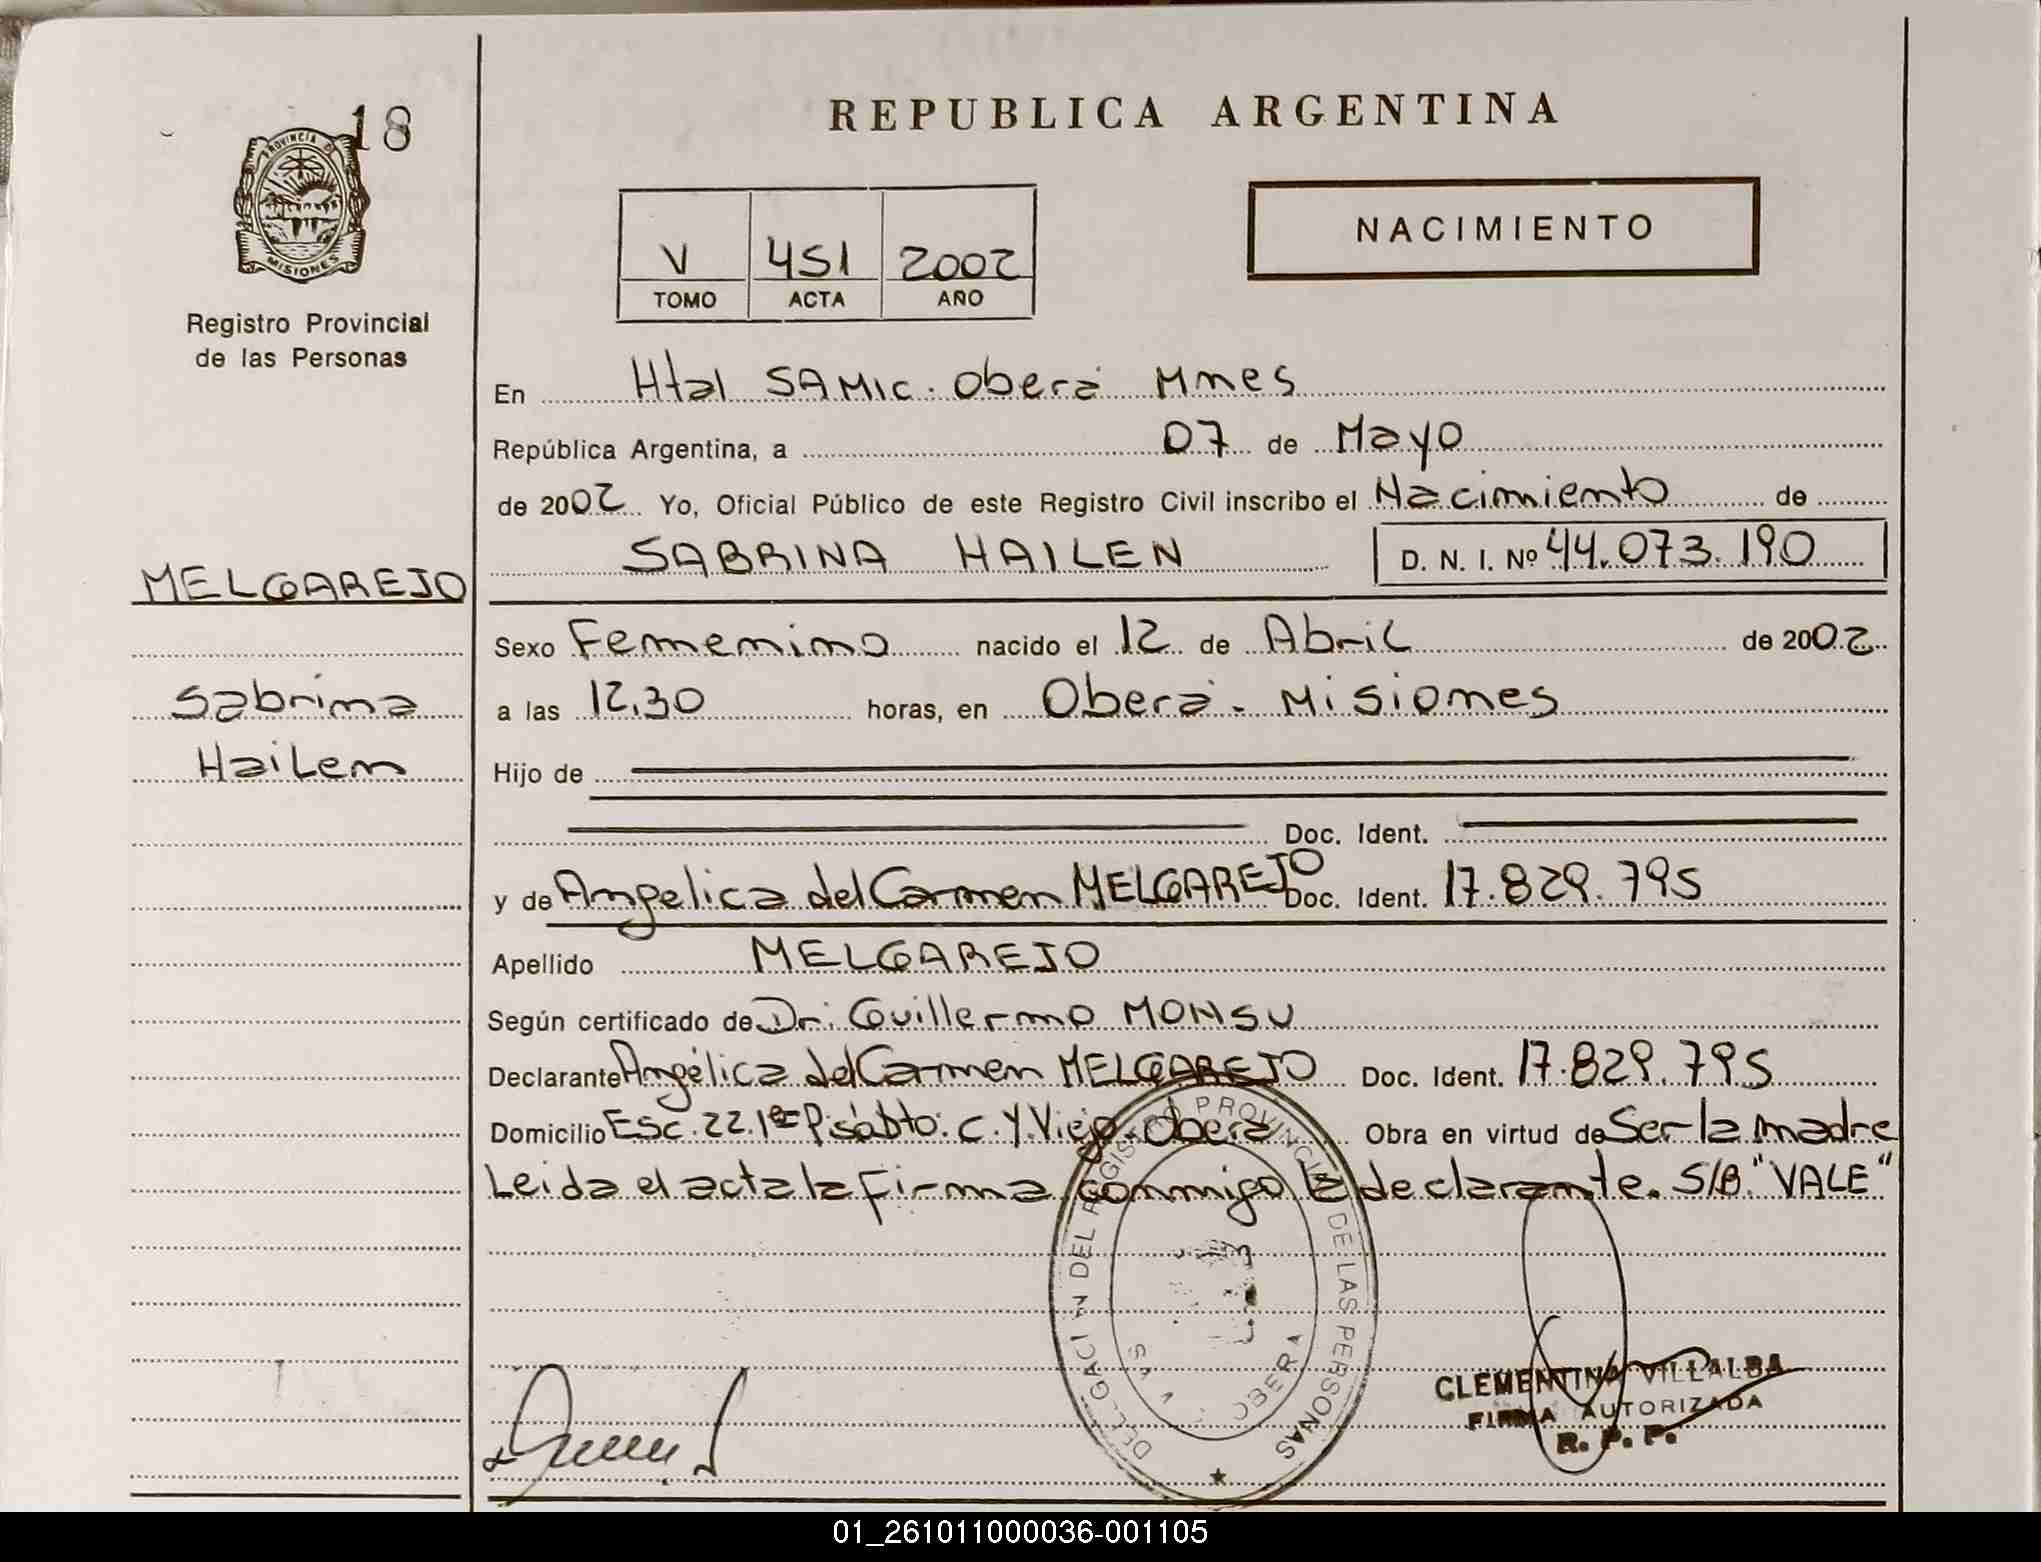 18
PROVINCIA D
MISIONES
Registro Provincial
de las Personas
MELGAREJO
Sabrina
Hailen
REPUBLICA ARGENTINA
V 451 2002
TOMO ACTA AÑO
NACIMIENTO
En Htal SAMIC. Oberá Mnes
República Argentina, a 07 de Mayo
de 2002 Yo, Oficial Público de este Registro Civil inscribo el Nacimiento de
SABRINA HAILEN D. N. I. Nº 44.073.190
Sexo Femenino nacido el 12 de Abril de 2002
a las 12,30 horas, en Oberá - Misiones
Hijo de
Doc. Ident.
y de Angelica del Carmen MELGAREJO Doc. Ident. 17.829.795
Apellido MELGAREJO
Según certificado de Dr. Guillermo MONSU
Declarante Angélica del Carmen MELGAREJO Doc. Ident. 17.829.795
Domicilio Esc. 22. 1er P. sobto: C. Y. Viejo. Oberá Obra en virtud de Ser la madre
Leida el acta la firma conmigo la declarante. S/B. "VALE"
DELEGACI N DEL REGISTRO PROVINCIAL DE LAS PERSONAS
OBERA
CLEMENTINA VILLALBA
FIRMA AUTORIZADA
R. P. P.
01_261011000036-001105